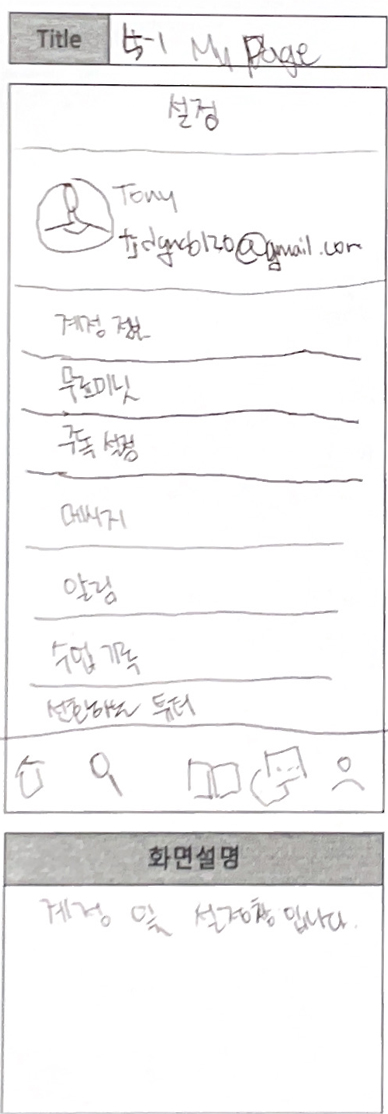 Title 5-1 My Page
설정
Tony
@gmail.com
계정 정보
무료미닛
구독 설정
메시지
알림
수업 기록
선호하는 튜터
화면설명
계정 및 설정창 입니다.